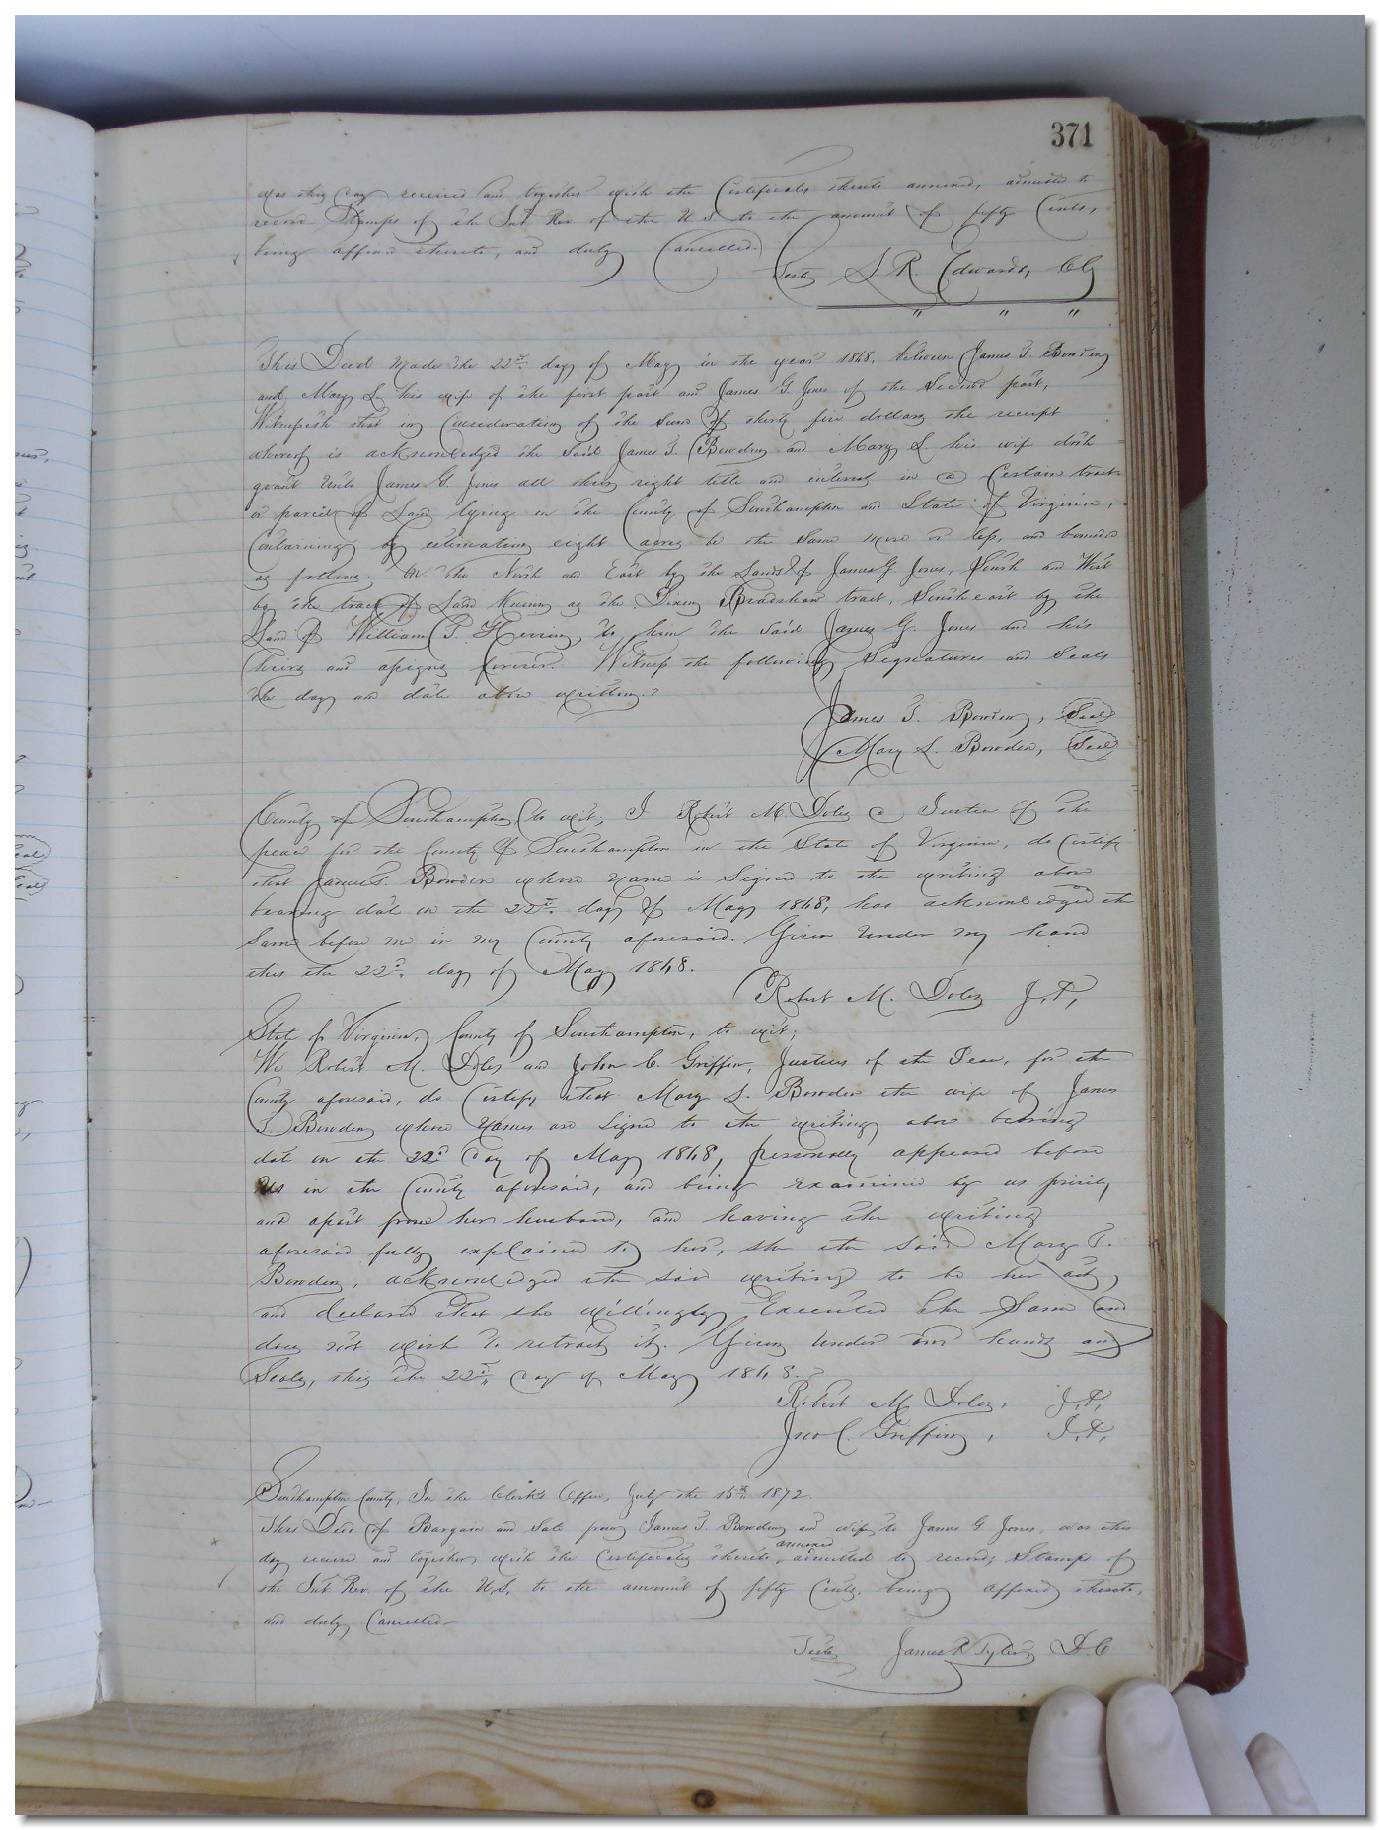 371
was this day received and together with the Certificates thereto annexed, admitted to
record Stamps of the Int Rev of the U S to the amount of fifty Cents,
being affixed thereto, and duly Cancelled.
Teste L. R. Edwards, Clk
" " "
This Deed made the 22d day of May in the year 1868, between James T. Bowden
and Mary L. his wife of the first part and James G. Jones of the Second part,
Witnesseth that in Consideration of the Sum of thirty five dollars the receipt
whereof is acknowledged the Said James T. Bowden and Mary L. his wife doth
grant Unto James G. Jones all their right title and interest in a Certain tract
or parcel of Land lying in the County of Southampton and State of Virginia,
Containing by estimation eight acres be the Same more or less, and bounded
as follows, On the North and East by the Lands of James G. Jones, South and West
by the tract of Land Known as the Bradshaw tract, Southeast by the
Land of William T. Herring, to him the Said James G. Jones and his
heirs and assigns forever. Witness the following Signatures and Seals
the day and date above written.
James T. Bowden, Seal
Mary L. Bowden, Seal
County of Southampton, to wit; I Robert M. Doles a Justice of the
peace for the County of Southampton in the State of Virginia, do Certify
that James T. Bowden whose name is Signed to the writing above
bearing date on the 22d day of May 1868, has acknowledged the
Same before me in my County aforesaid. Given Under my hand
this the 22d day of May 1868.
Robert M. Doles J.P.
State of Virginia, County of Southampton, to wit;
We Robert M. Doles and John C. Griffin, Justices of the Peace, for the
County aforesaid, do Certify that Mary L. Bowden the wife of James
T. Bowden whose Names are Signed to the writing above bearing
date on the 22d day of May 1868, personally appeared before
us in the County aforesaid, and being examined by us privily
and apart from her husband, and having the writing
aforesaid fully explained to her, she the said Mary T.
Bowden, acknowledged the said writing to be her act,
and declared that she willingly Executed the Same and
does not wish to retract it. Given Under our hands and
Seals, this the 22d day of May 1868.
Robert M. Doles, J.P.
Jno C. Griffin, J.P.
Southampton County, In the Clerk's Office, July the 15th 1872.
This Deed of Bargain and Sale from James T. Bowden and wife to James G. Jones, was this
annexed
day received and together with the Certificates thereto admitted to record, Stamps of
the Int Rev. of the U.S. to the amount of fifty Cents, being affixed thereto,
and duly Cancelled
Teste James R Tyler, D.C